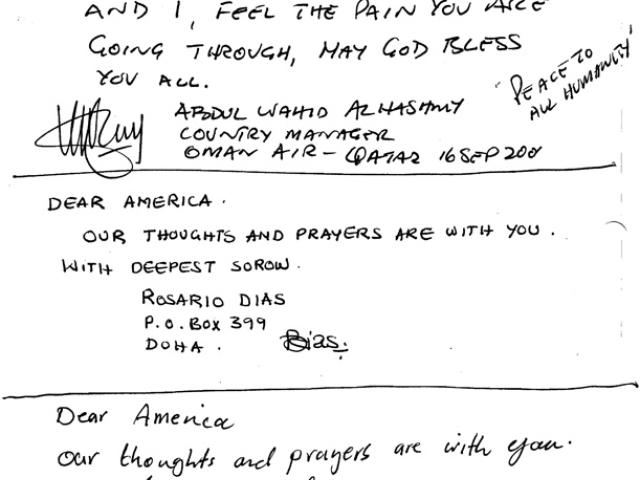 AND I, FEEL THE PAIN YOU ARE
GOING THROUGH, MAY GOD BLESS
YOU ALL.
"PEACE TO
ALL HUMANITY"
ABDUL WAHID ALHASHMY
COUNTRY MANAGER
OMAN AIR - QATAR 16 SEP 2001
DEAR AMERICA.
OUR THOUGHTS AND PRAYERS ARE WITH YOU.
WITH DEEPEST SOROW.
ROSARIO DIAS
P.O. BOX 399
DOHA.
Dias.
Dear America
Our thoughts and prayers are with you.